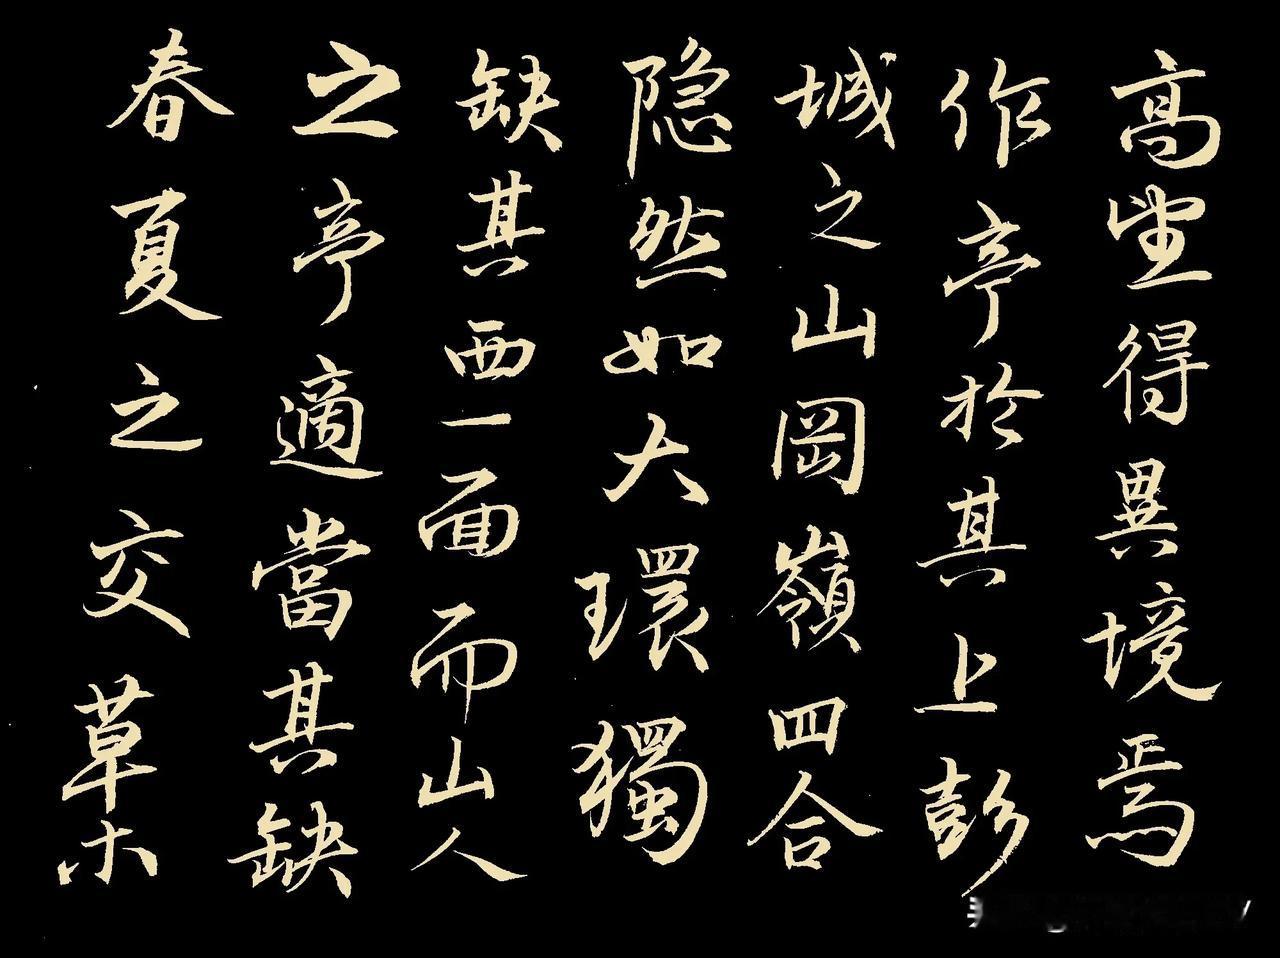 高望得異境焉
作亭於其上彭
城之山岡嶺四合
隐然如大環獨
缺其西一面而山人
之亭適當其缺
春夏之交草木